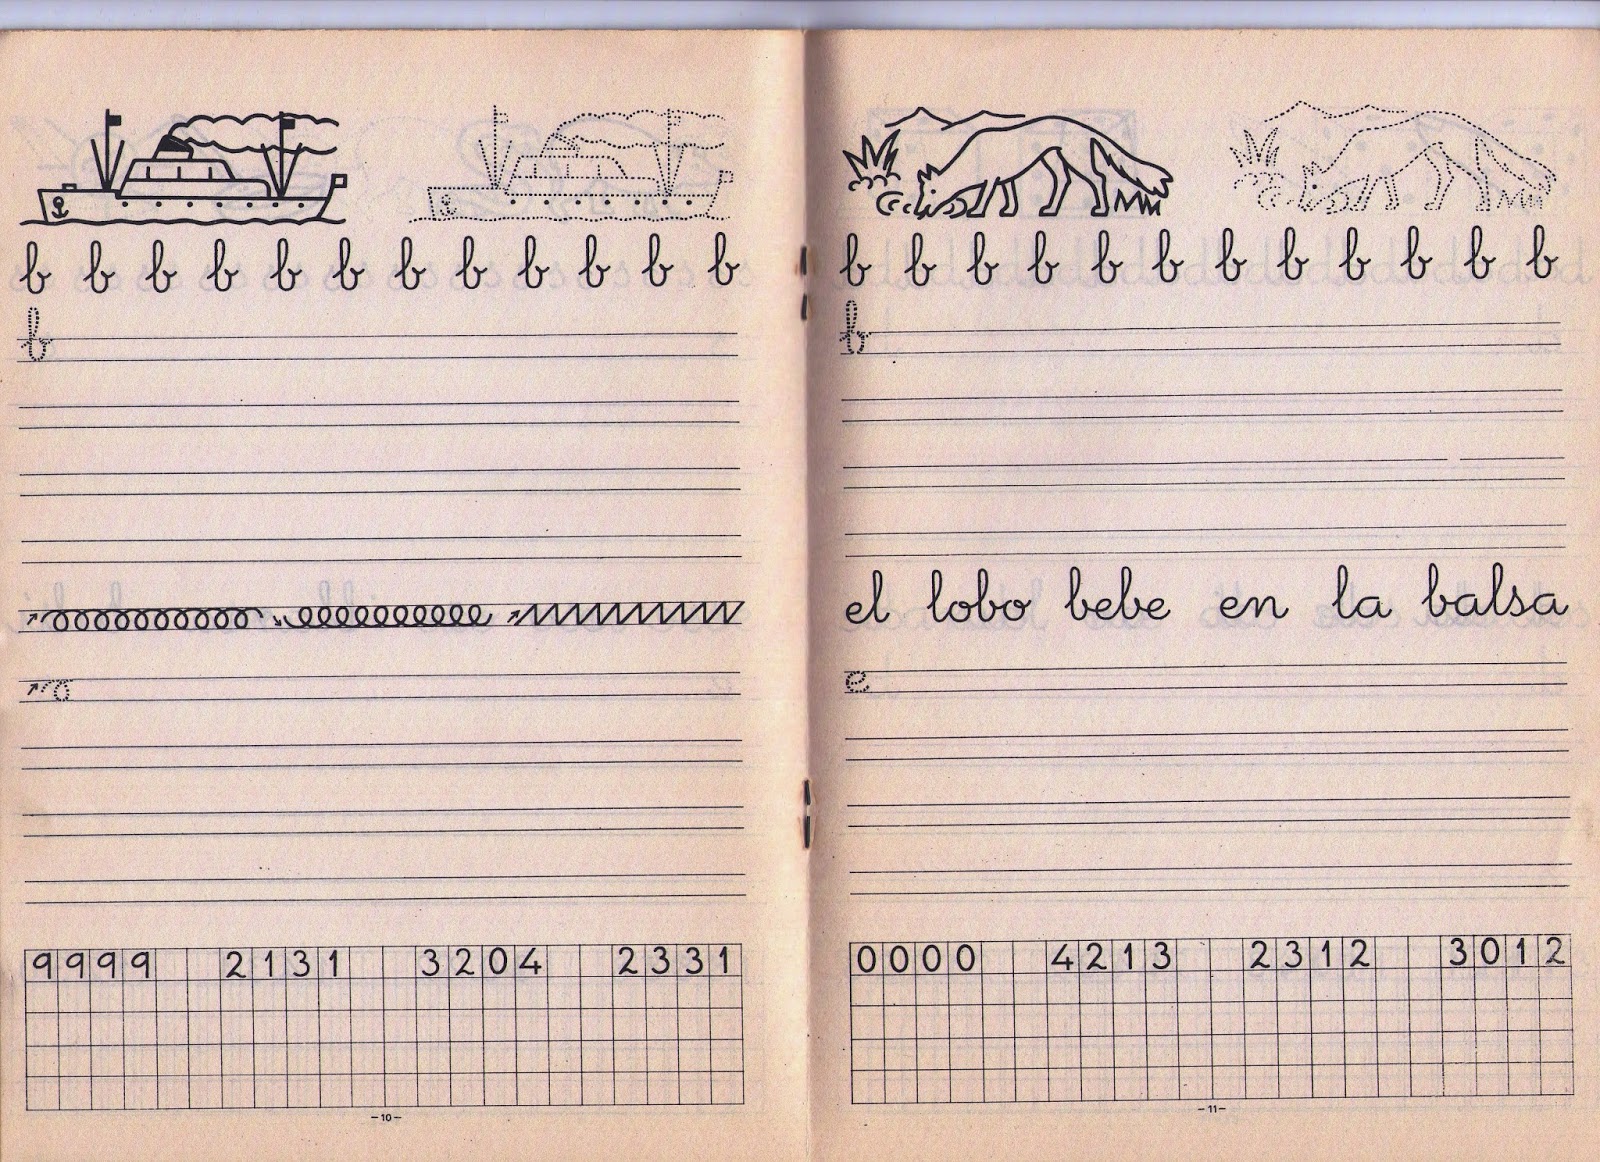 b b b b b b b b b b b b
b
o
9999 2131 3204 2331
-10-
b b b b b b b b b b b b
b
el lobo bebe en la balsa
e
0000 4213 2312 3012
-11-